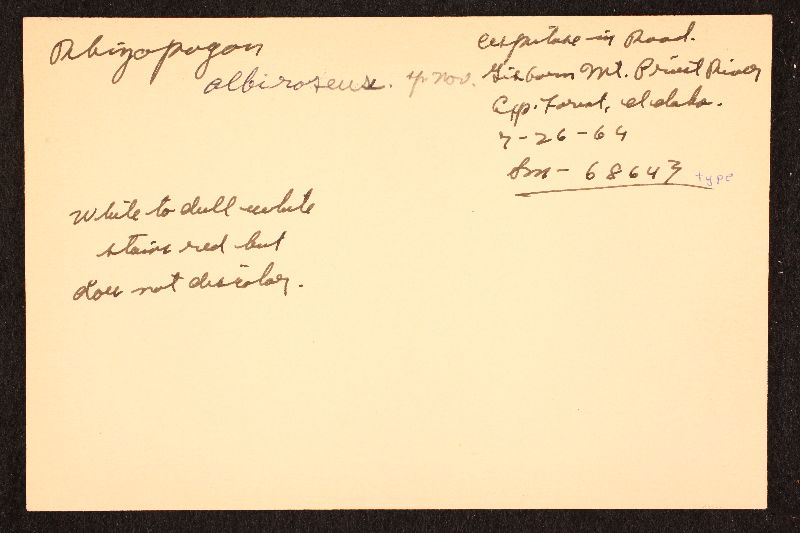 Rhizopogon
albiroseus. sp. nov.
cespitose in Road.
Gisborn Mt. Priest River
Exp. Forest, Idaho.
7-26-64
Sm- 68643 type
White to dull white
stains red but
does not discolor.